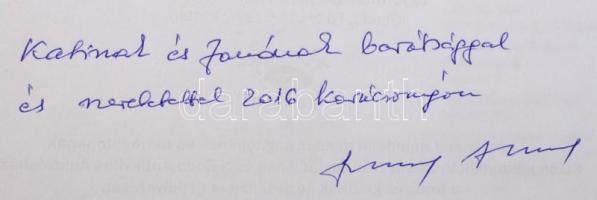 Katinak és Janónak barátsággal
és szeretettel 2016 karácsonyán
darabanth